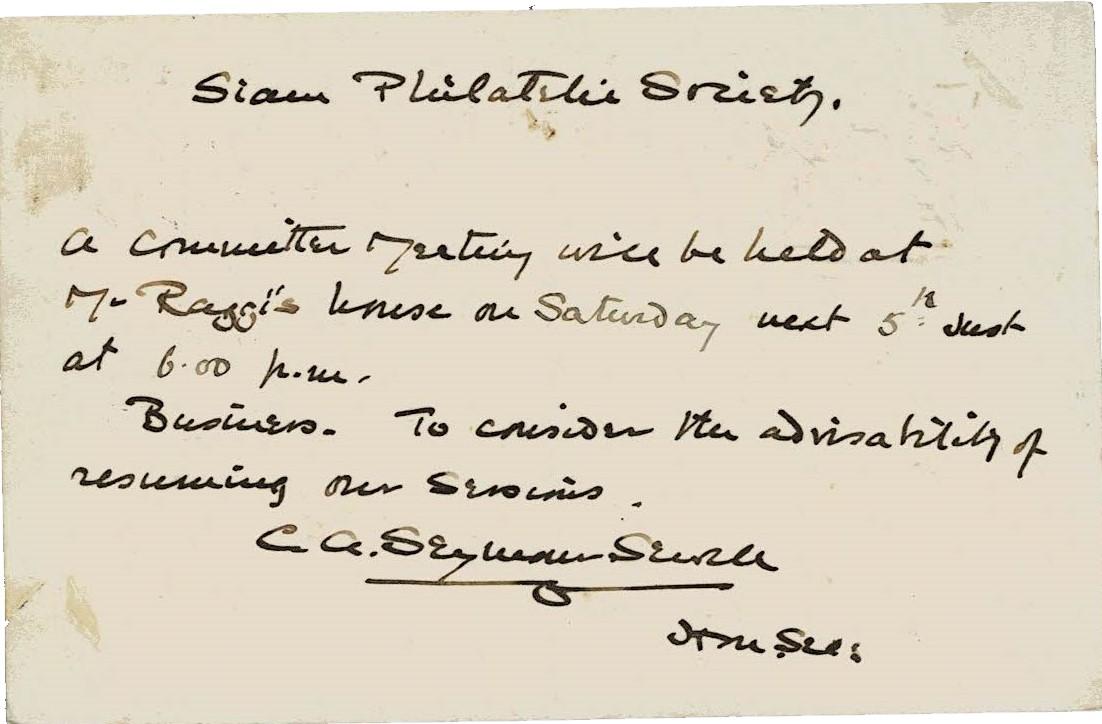 Siam Philatelic Society.
A Committee Meeting will be held at
Mr Raggi's house on Saturday next 5th Inst
at 6.00 p.m.
Business. To consider the advisability of
resuming our Sessions.
C. A. Seymour Sewell
Hon Sec: